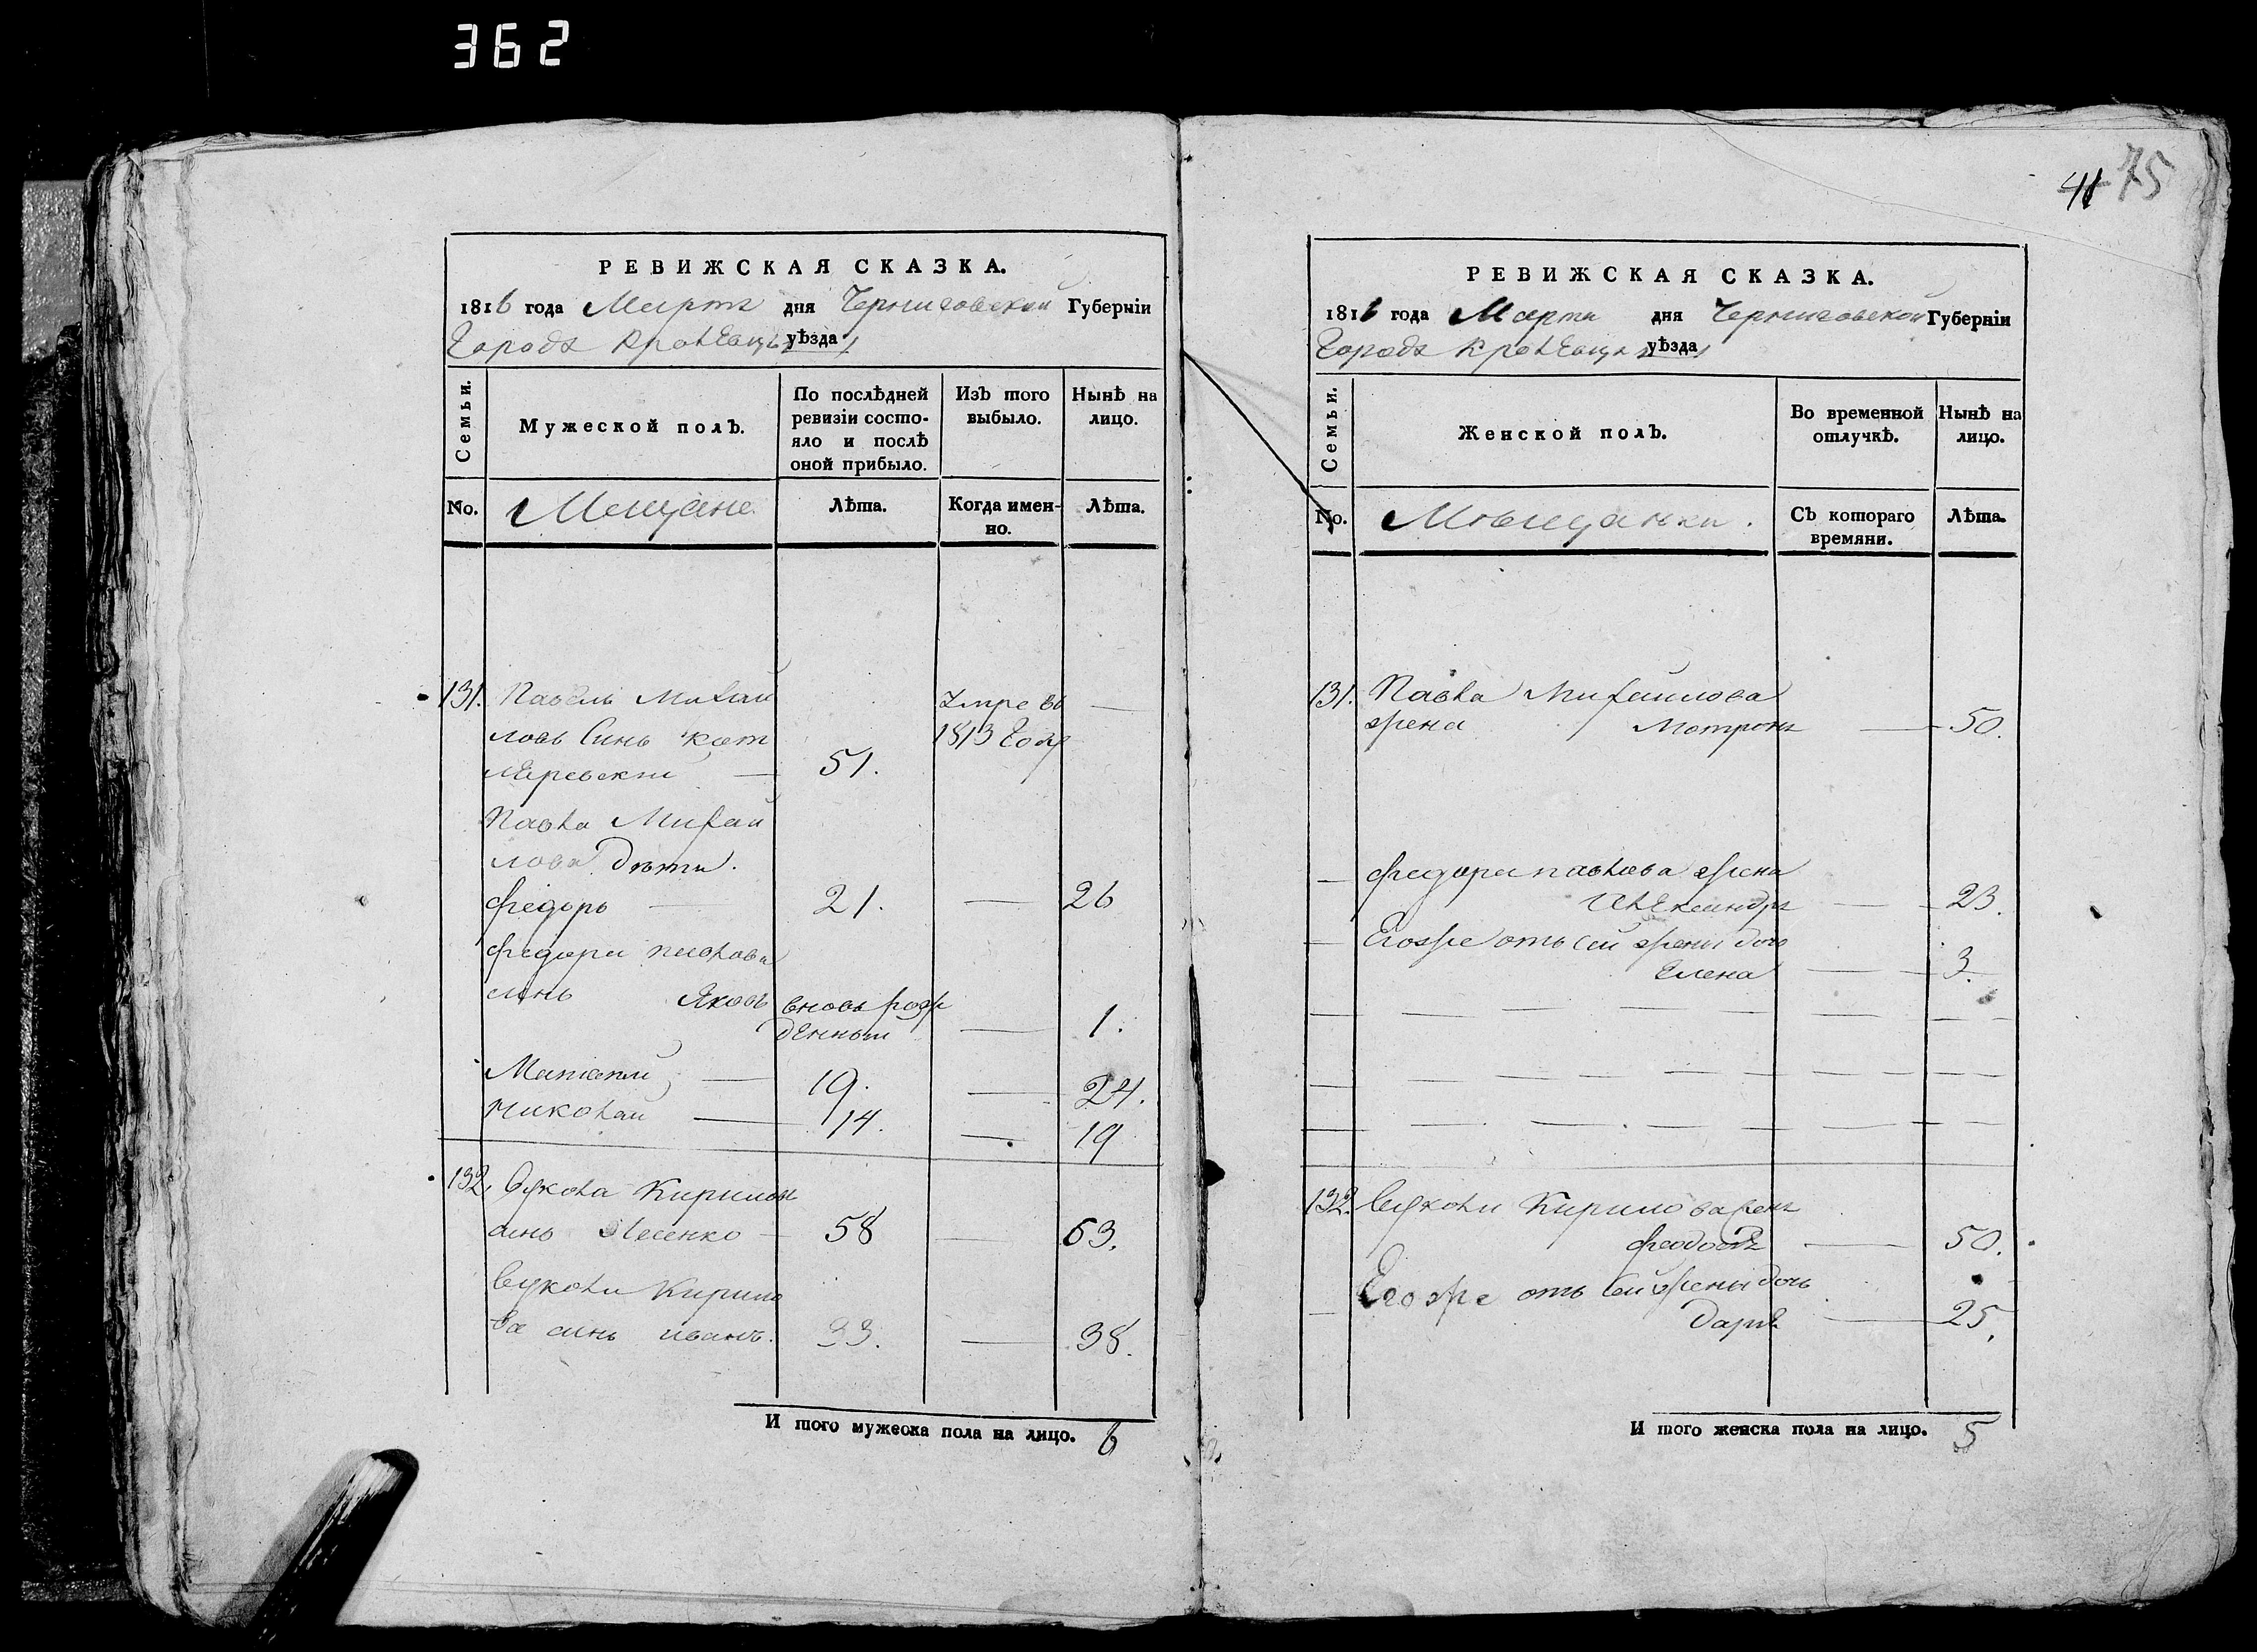 362
41 75
РЕВИЖСКАЯ СКАЗКА.
1816 года Марта дня Черниговской Губерніи
Города Кролевца уѣзда
Семьи.
Мужеской полъ.
По послѣдней
ревизіи состо-
яло и послѣ
оной прибыло.
Изъ того
выбыло.
Нынѣ на
лицо.
No.
Мещане
Лѣта.
Когда имен-
но.
Лѣта.
131. Павелъ Михай
ловъ Синъ
51.
Умре въ
1813 Году
Павла Михай
лова дѣти.
Федоръ 21. 26
Федора Павлова
синъ Яковъ вновь рож
денный 1.
19. 24.
Николай 14. 19
132. Вукола Кирилова
синъ Лесенко 58 63.
Вукола Кирило
ва синъ Иванъ. 33. 38.
И того мужеска пола на лицо. 6
РЕВИЖСКАЯ СКАЗКА.
1816 года Марта дня Черниговской Губерніи
Города Кролевца уѣзда
Семьи.
Женской полъ.
Во временной
отлучкѣ.
Нынѣ на
лицо.
No.
Мѣщанки.
Съ котораго
времяни.
Лѣта.
131. Павла Михайлова
жена Мотрона 50.
Федора Павлова жена
Александра 23.
Егоже отъ сей жены дочь
Елена 3.
132. Вукола Кирилова жена
50.
Егоже отъ сей жены дочь
Дарія 25.
И того женска пола на лицо. 5